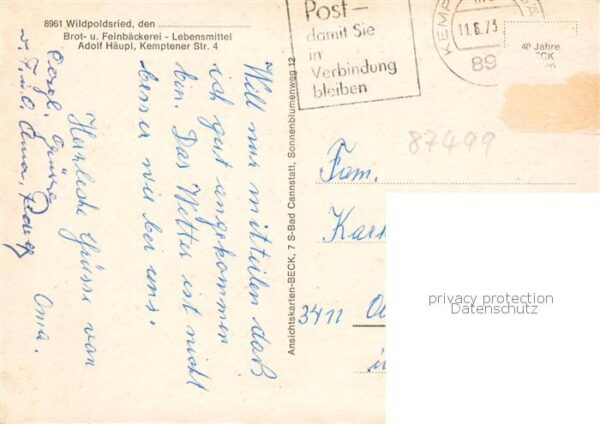 8961 Wildpoldsried, den
Brot- u. Feinbäckerei - Lebensmittel
Adolf Häupl, Kemptener Str. 4
Will nur mitteilen daß
ich gut angekommen
bin. Das Wetter ist nicht
besser wie bei uns.
Herzliche Grüsse von
Oma.
Herzl. Grüße
Oma,
Ansichtskarten-BECK, 7 S-Bad Cannstatt, Sonnenblumenweg 12
Post–
damit Sie
in
Verbindung
bleiben
KEMP
11.6.73
89
40 Jahre
87499
Fam.
Kar
3411
privacy protection
Datenschutz